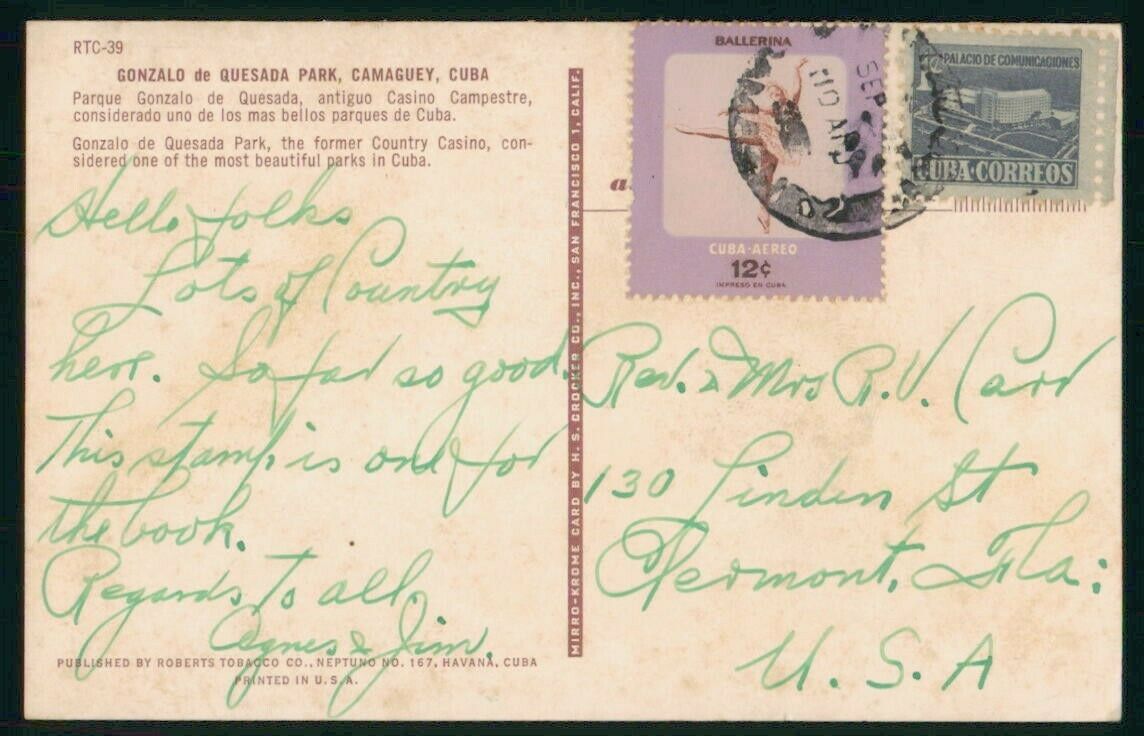 RTC-39
GONZALO de QUESADA PARK, CAMAGUEY, CUBA
Parque Gonzalo de Quesada, antiguo Casino Campestre,
considerado uno de los mas bellos parques de Cuba.
Gonzalo de Quesada Park, the former Country Casino, con-
sidered one of the most beautiful parks in Cuba.
Hello folks
Lots of Country
here. So far so good.
This stamp is one for
the book.
Regards to all.
Agnes & Jim.
PUBLISHED BY ROBERTS TOBACCO CO., NEPTUNO NO. 167, HAVANA, CUBA
PRINTED IN U. S. A.
MIRRO-KROME CARD BY H. S. CROCKER CO., INC., SAN FRANCISCO 1, CALIF.
BALLERINA
CUBA-AEREO
12¢
IMPRESO EN CUBA
SEP
PALACIO DE COMUNICACIONES
CUBA·CORREOS
Rev. & Mrs R. V. Carr
130 Linden St
Clermont, Fla:
U. S. A